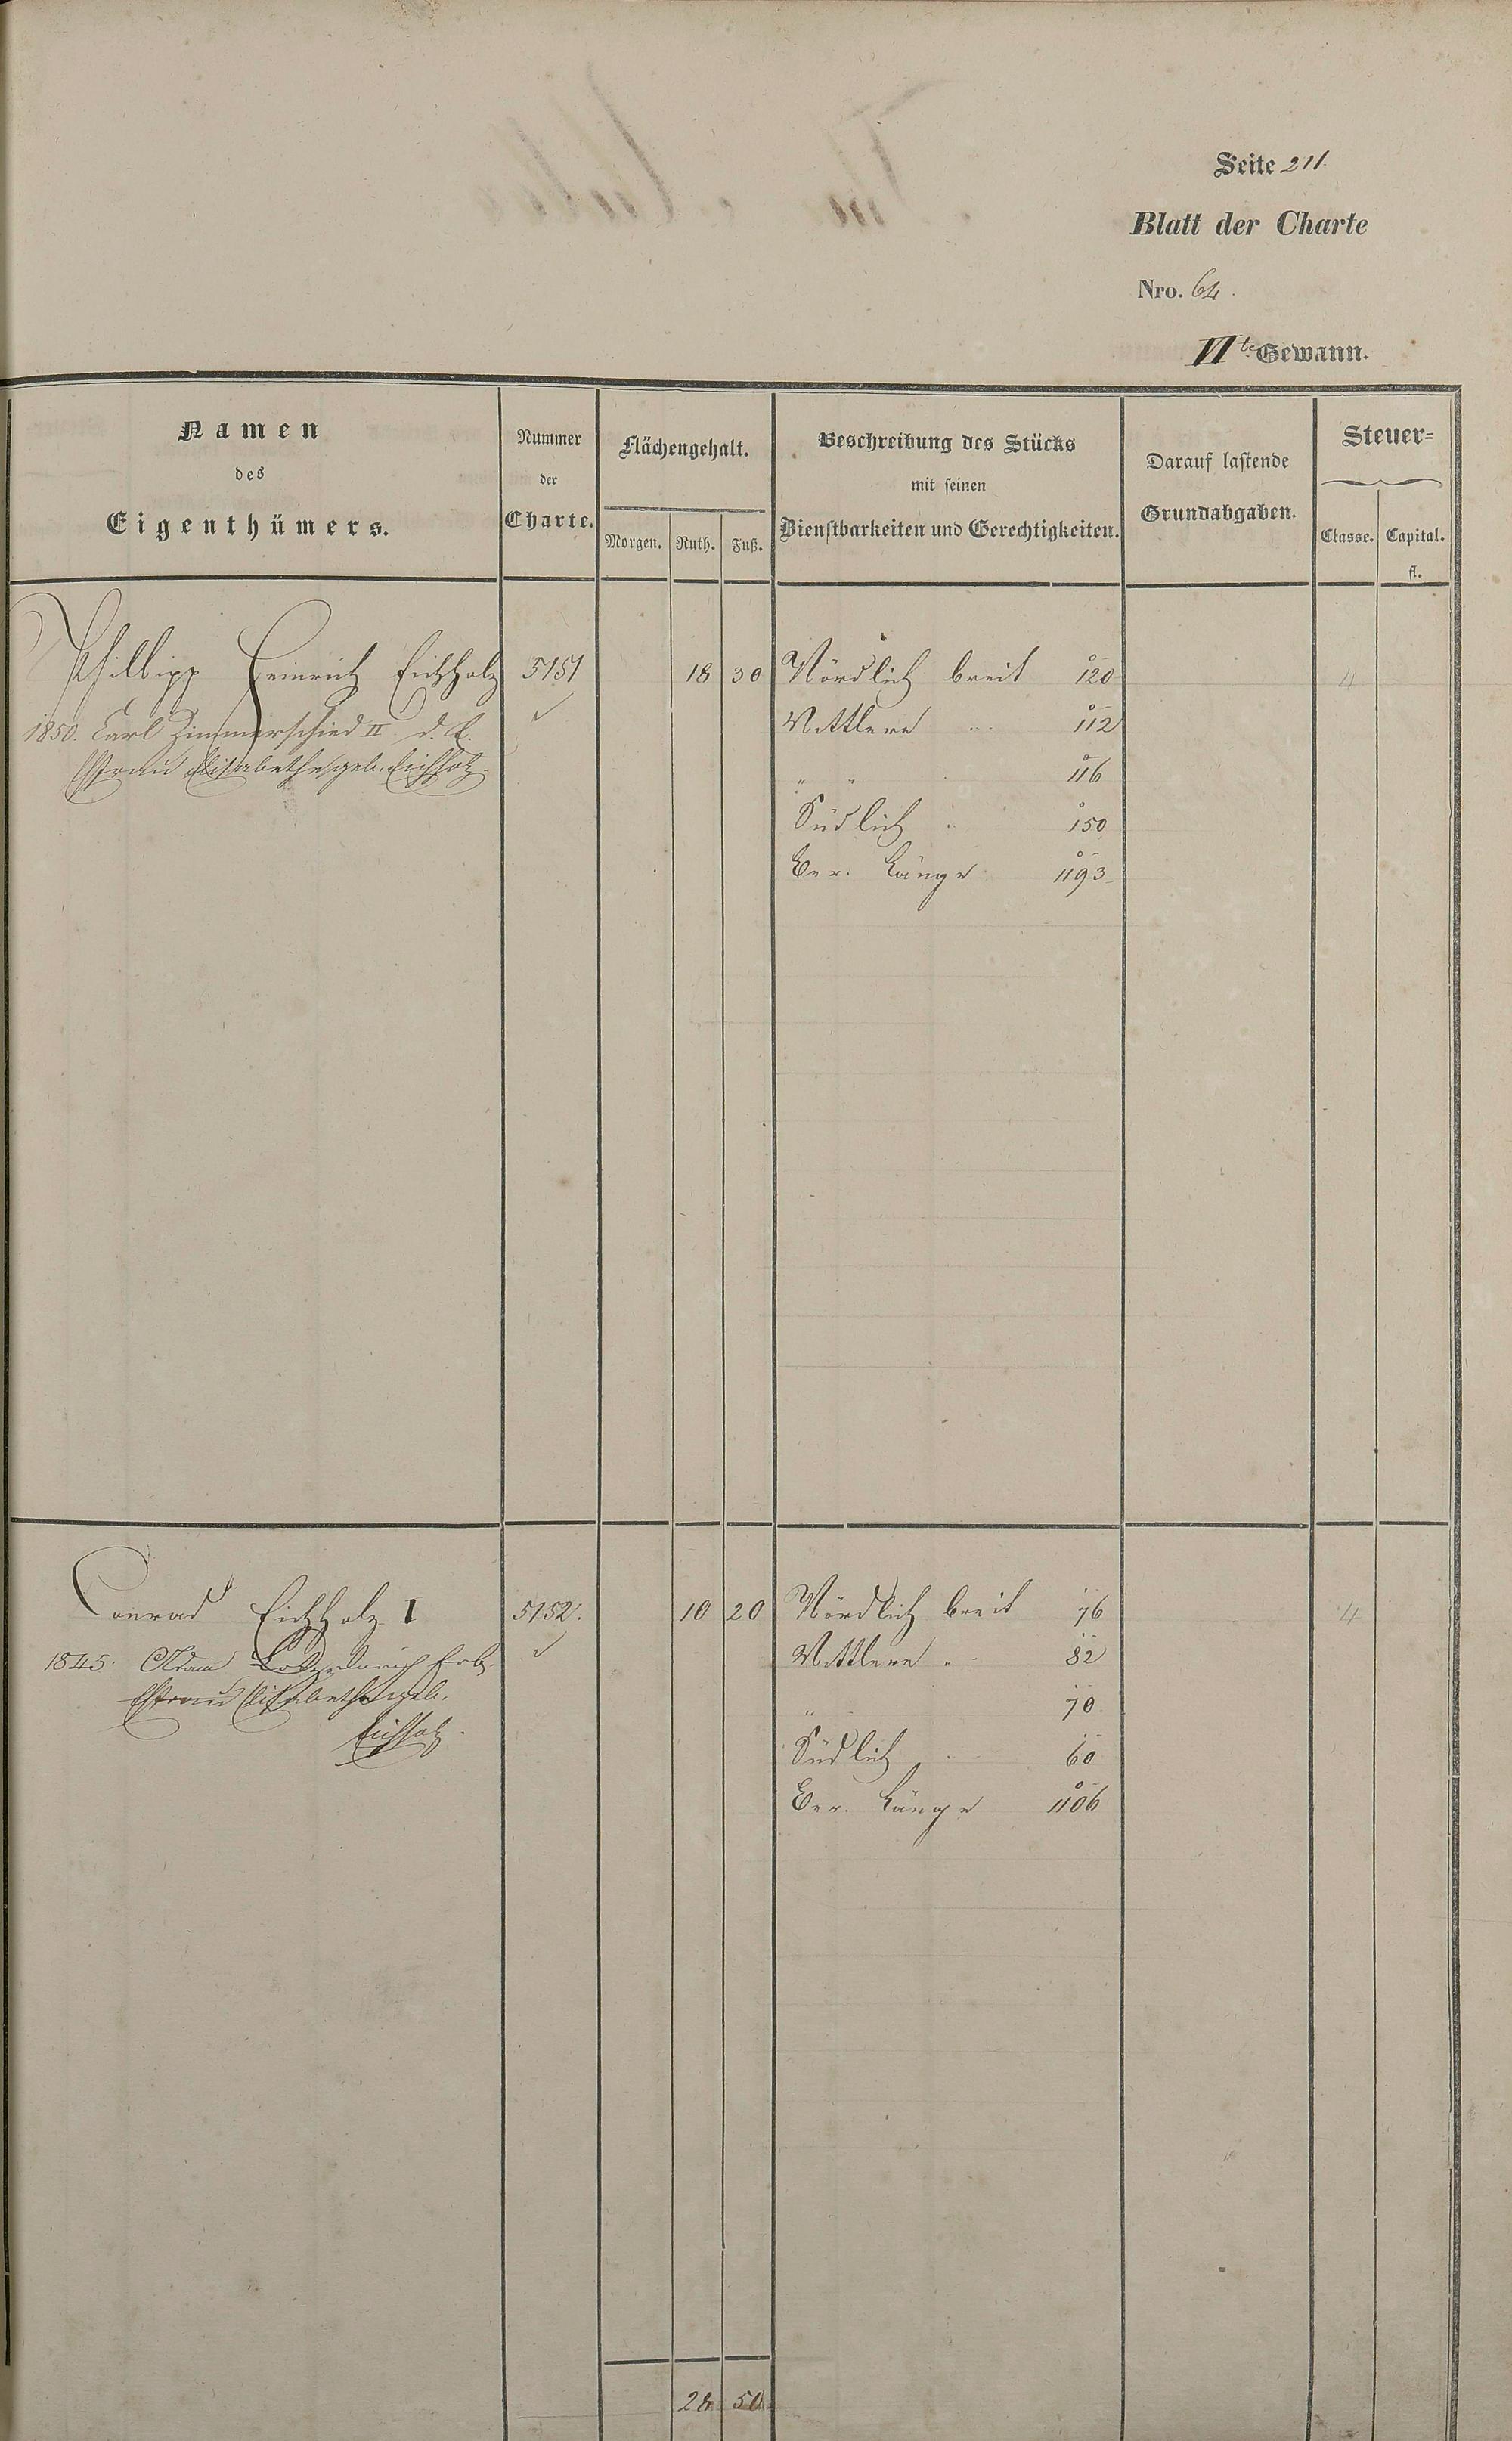 Seite 211.
Blatt der Charte
Nro. 64.
VIte Gewann.
Namen
des
Eigenthümers.
Nummer
der
Charte.
Flächengehalt.
Morgen. Ruth. Fuß.
Beschreibung des Stücks
mit seinen
Dienstbarkeiten und Gerechtigkeiten.
Darauf lastende
Grundabgaben.
Steuer=
Classe. Capital.
fl.
Philipp Heinrich Eichholz 5151 18 30 Nördlich breit 120 4
1850. Carl Zimmerschied II d. E. ✓ Mittlere " 112
Ehefrau Elisabethe geb. Eichholz. " " 116
Südlich " 150
Ver. Länge 1193
Conrad Eichholz I 5152. 10 20 Nördlich breit 76 4
1845. Adam ✓ Mittlere " 82
Ehefrau Elisabethe geb. " 70
Eichholz. Südlich " 60
Ver. Länge 1106
28 50